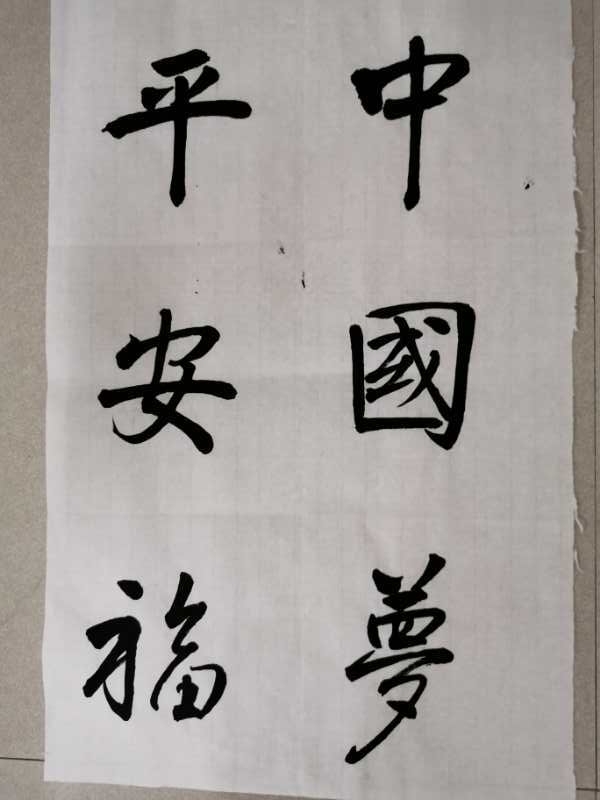 中國夢
平安福